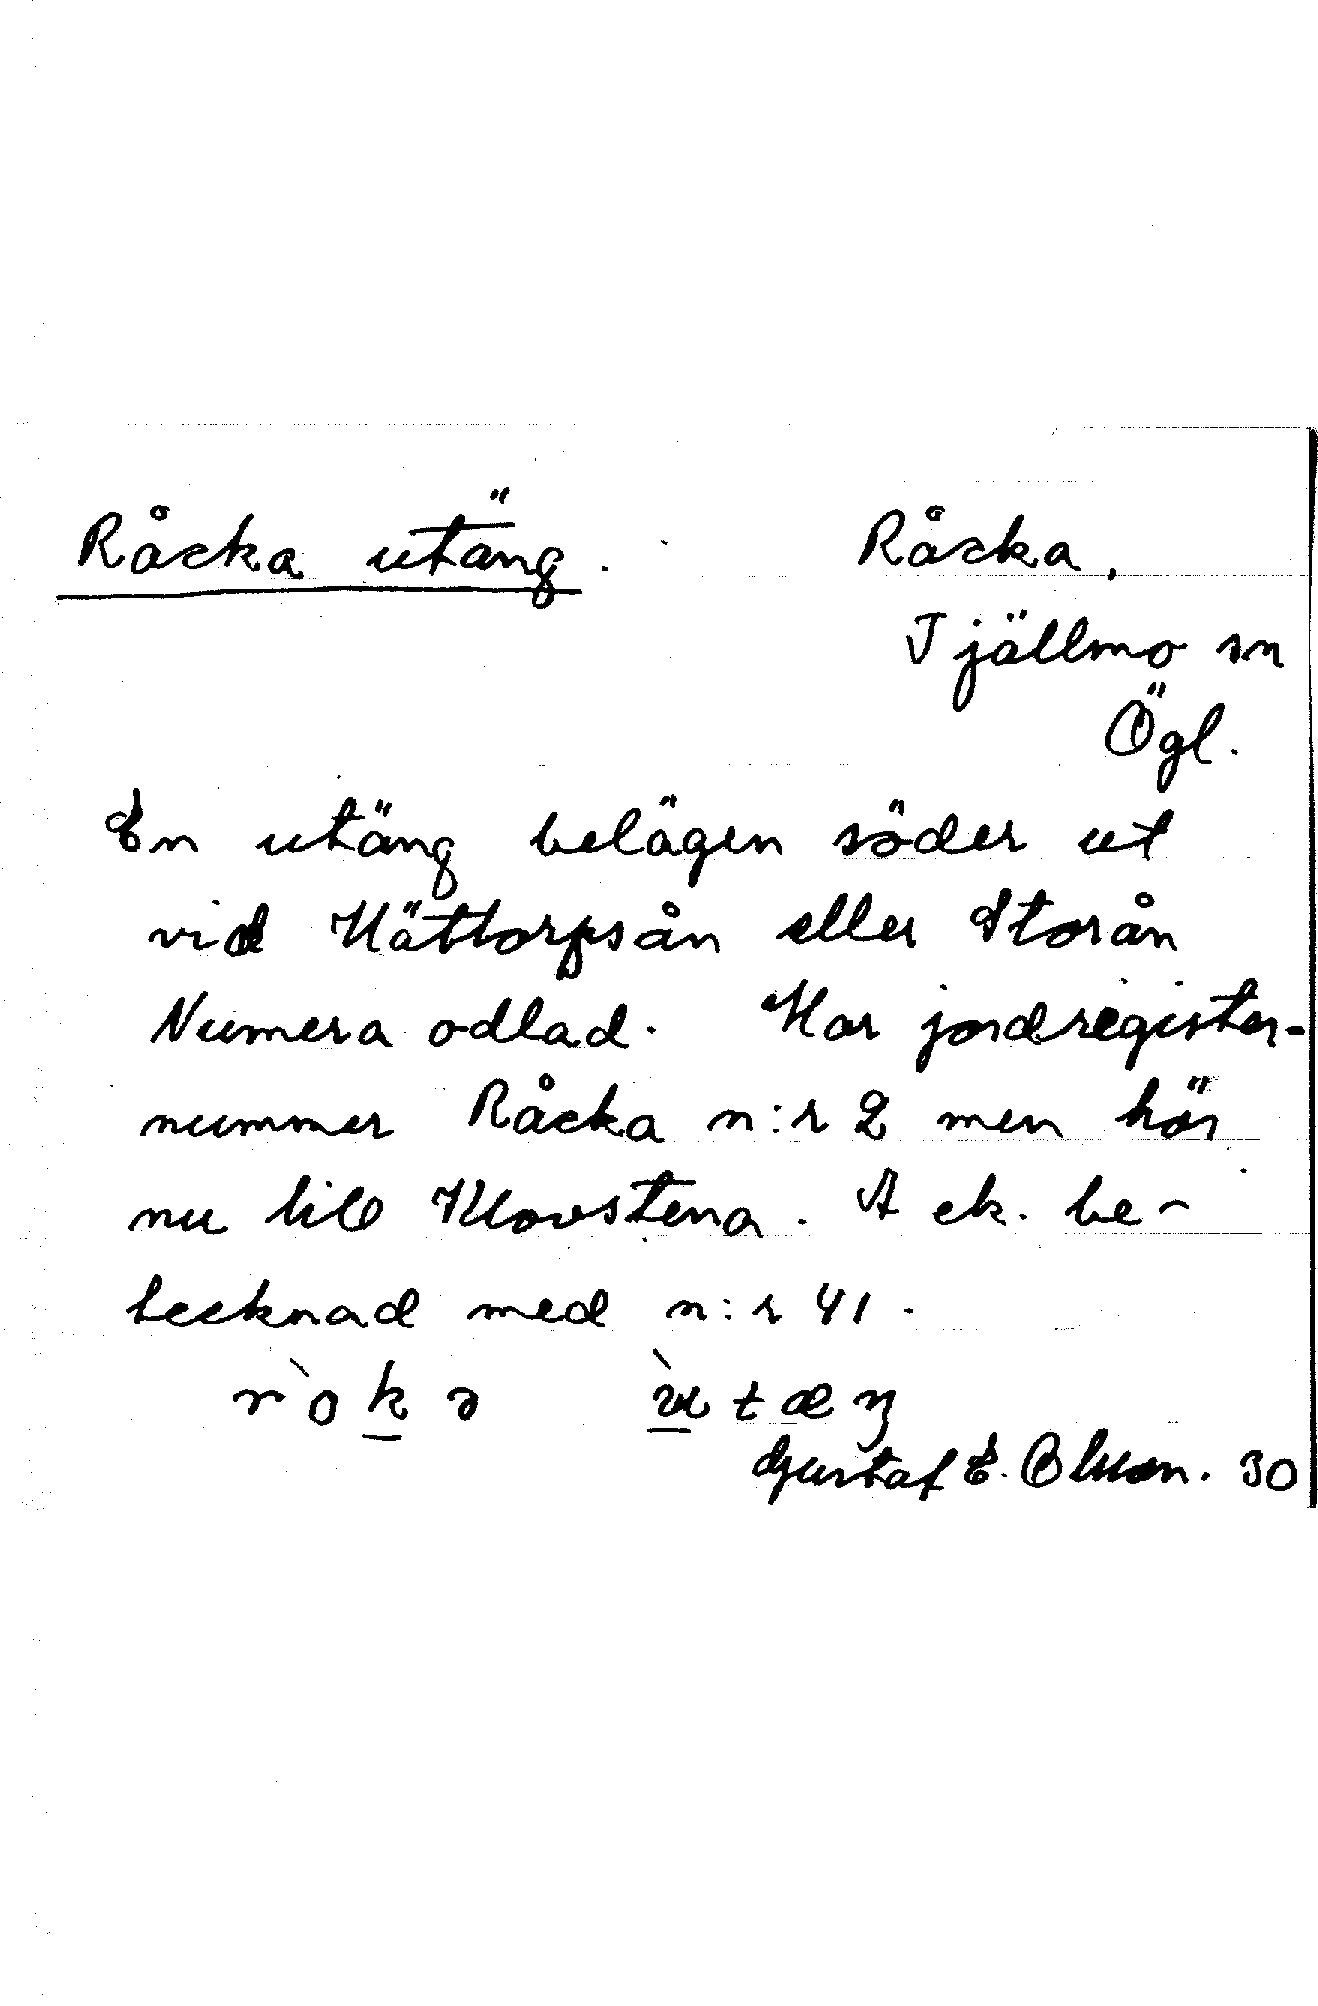 Råcka utäng.
Råcka,
Tjällmo sn
Ögl.
En utäng belägen söder ut
vid Hättorpsån eller Storån
Numera odlad. Har jordregister-
nummer Råcka n:r 2 men hör
nu till Klovstena. A ek. be-
tecknad med n:r 41.
Gustaf E. 30